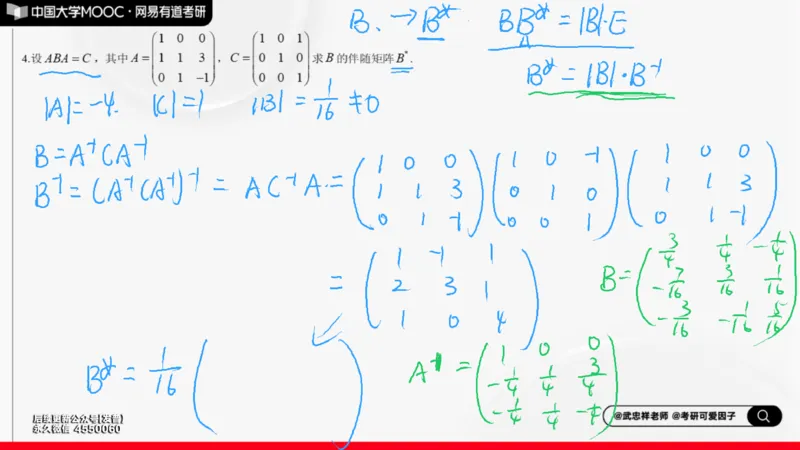 中国大学MOOC · 网易有道考研
B. → B* BB* = |B|·E
4.设 ABA = C，其中 A = (1 0 0; 1 1 3; 0 1 -1)，C = (1 0 1; 0 1 0; 0 0 1) 求 B 的伴随矩阵 B*.
B* = |B|·B⁻¹
|A| = -4. |C| = 1 |B| = 1/16 ≠ 0
B = A⁻¹CA⁻¹
B⁻¹ = (A⁻¹CA⁻¹)⁻¹ = AC⁻¹A = (1 0 0; 1 1 3; 0 1 -1)(1 0 -1; 0 1 0; 0 0 1)(1 0 0; 1 1 3; 0 1 -1)
= (1 -1 1; 2 3 1; 1 0 4)
B = (3/4 1/4 -1/4; -7/16 3/16 1/16; -3/16 -1/16 5/16)
A⁻¹ = (1 0 0; -1/4 1/4 3/4; -1/4 1/4 -1/4)
B* = 1/16 ( )
@武忠祥老师 @考研可爱因子
永久微信 4550060